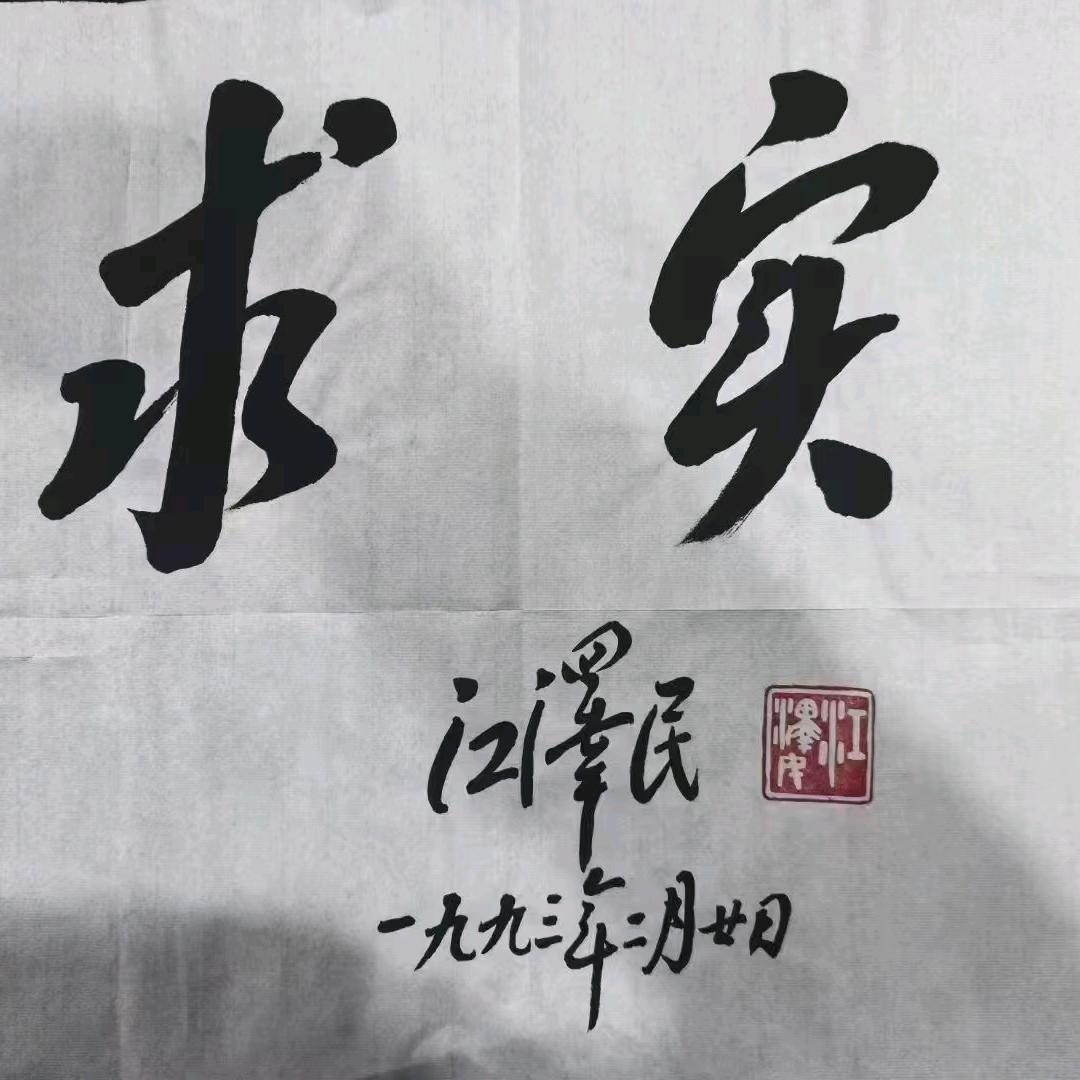 求实
江澤民
一九九三年二月廿日
江澤民